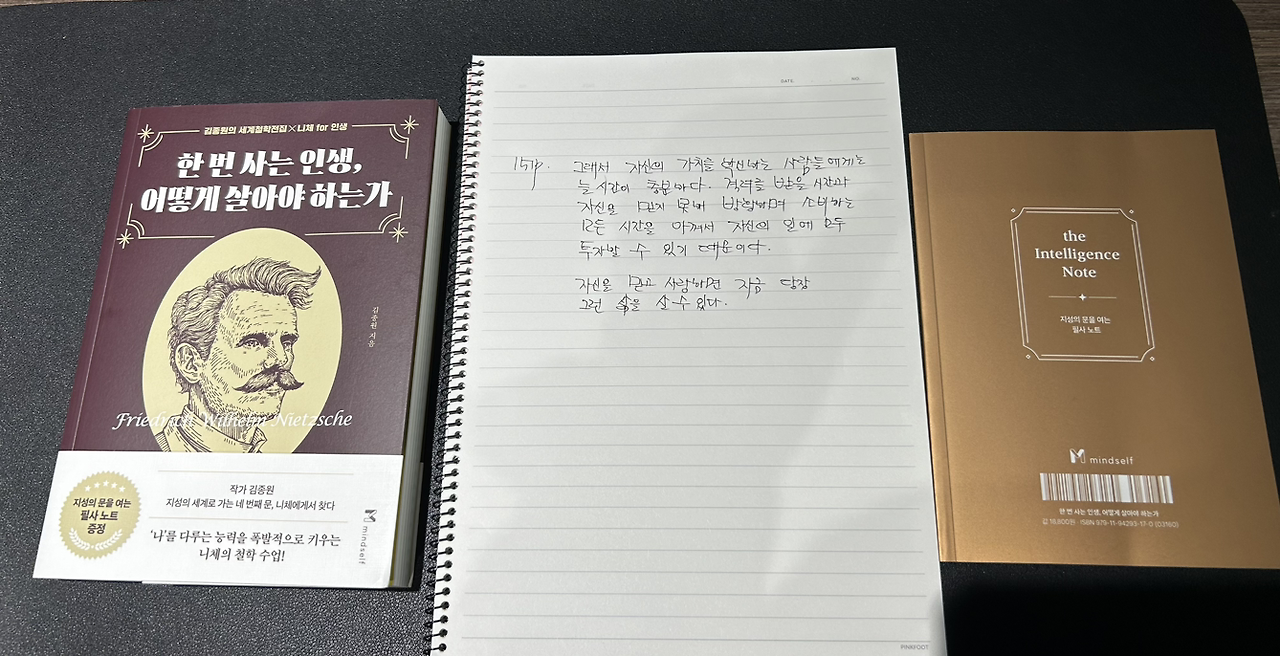 김종원의 세계철학전집×니체 for 인생
한 번 사는 인생,
어떻게 살아야 하는가
김종원 지음
Friedrich Wilhelm Nietzsche
지성의 문을 여는
필사 노트
증정
작가 김종원
지성의 세계로 가는 네 번째 문, 니체에게서 찾다
'나'를 다루는 능력을 폭발적으로 키우는
니체의 철학 수업!
mindself
DATE
NO.
151p. 그래서 자신의 가치를 확신하는 사람들에게는
늘 시간이 충분하다. 격려를 받을 시간과
자신을 믿지 못해 방황하며 소비하는
모든 시간을 아껴서 자신의 일에 모두
투자할 수 있기 때문이다.
자신을 믿고 사랑하면 지금 당장
그런 삶을 살 수 있다.
PINKFOOT
the
Intelligence
Note
지성의 문을 여는
필사 노트
mindself
한 번 사는 인생, 어떻게 살아야 하는가
값 16,800원 ISBN 979-11-94293-17-0 (03160)